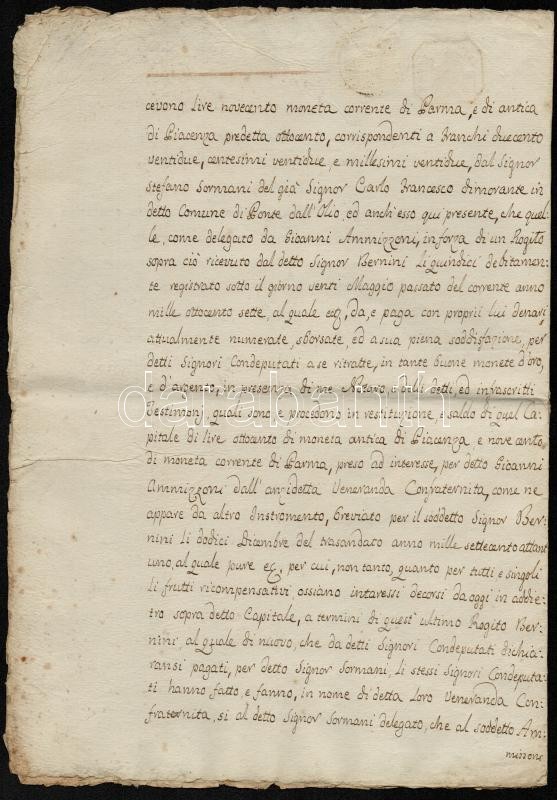 cevono lire novecento moneta corrente di Parma, e di antica
di Piacenza predetta ottocento, corrispondenti a Franchi duecento
ventidue, centesimi ventidue, e millesimi ventidue, dal Signor
Stefano Sormani del già Signor Carlo Francesco dimorante in
detto Comune di Ponte dall'Olio, ed anch'esso qui presente, che quel-
le, come delegato da Gioanni Ammizzoni, in forza di un Rogito
sopra ciò ricevuto dal detto Signor Bernini li quindici debitamen-
te registrato sotto il giorno venti Maggio passato del corrente anno
mille ottocento sette, al quale ec, da, e paga con proprii lui denari
attualmente numerate, sborsate, ed a sua piena soddisfazione, per
detti Signori Condeputati a se ritratte, in tante buone monete d'oro,
e d'argento, in presenza di me Notaro, e delli detti, ed infrascritti
Testimonj, quali sono, e procedono in restituzione, e saldo di quel Ca-
pitale di lire ottocento di moneta antica di Piacenza, e nove cento
di moneta corrente di Parma, preso ad interesse, per detto Gioanni
Ammizzoni dall'anzidetta Veneranda Confraternita, come ne
appare da altro Instromento, breviato per il suddetto Signor Ber-
nini li dodici Dicembre del trasandato anno mille settecento ottant'
uno, al quale pure ec, per cui, non tanto, quanto per tutti, e singoli
li frutti ricompensativi ossiano intaressi decorsi da oggi in addie-
tro sopra detto Capitale, a termini di quest'ultimo Rogito Ber-
nini, al quale di nuovo, che da detti Signori Condeputati dichia-
ransi pagati, per detto Signor Sormani, li stessi Signori Condeputa-
ti hanno fatto, e fanno, in nome di detta loro Veneranda Con-
fraternita, sì al detto Signor Sormani delegato, che al suddetto Am-
mizzoni
darabanth